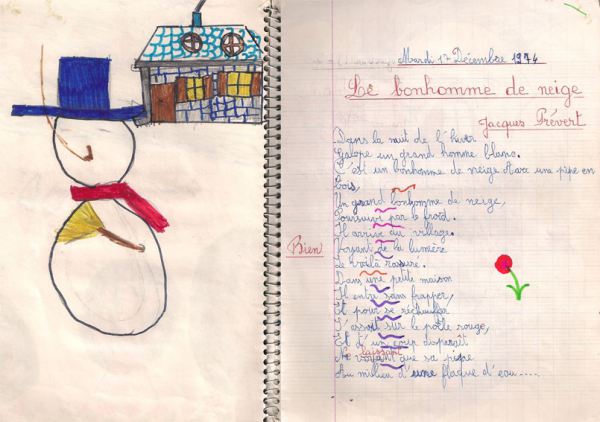 Mardi 17 Décembre 1974
Le bonhomme de neige
Jacques Prévert
Dans la nuit de l'hiver
Galope un grand homme blanc.
C'est un bonhomme de neige Avec une pipe en
bois,
Un grand bonhomme de neige,
Poursuivi par le froid.
Il arrive au village.
Voyant de la lumière
Bien
Le voilà rassuré.
Dans une petite maison
Il entre sans frapper,
Et pour se réchauffer
S'assoit sur le poêle rouge,
Et d'un coup disparaît
laissant
Ne voyant que sa pipe
Au milieu d'une flaque d'eau.....